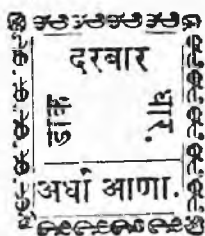 दरबार
धार.
अर्धा आणा.